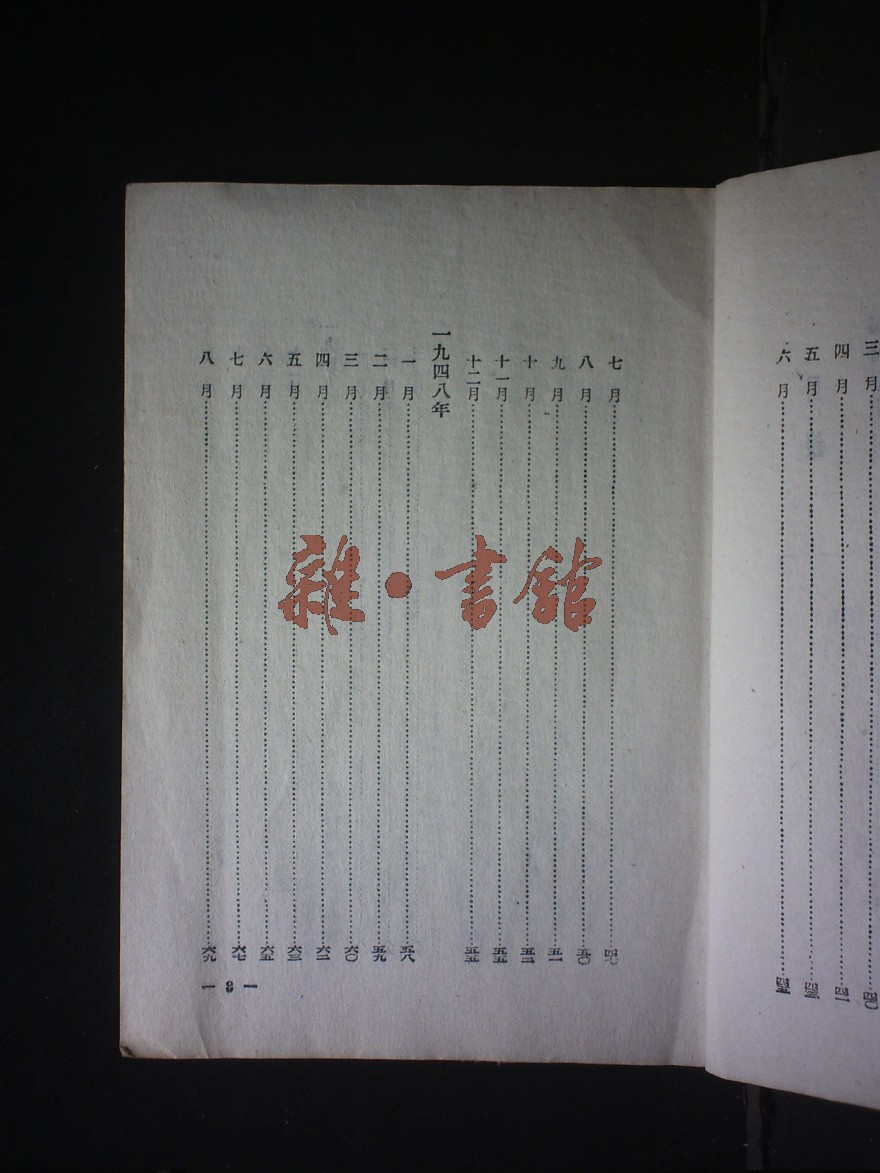 三月……四〇
四月……四一
五月……四三
六月……四五
七月……四七
八月……五〇
九月……五一
十月……五三
十一月……五五
十二月……五五
一九四八年
一月……五八
二月……五九
三月……六〇
四月……六二
五月……六三
六月……六五
七月……六七
八月……六九
雜·書館